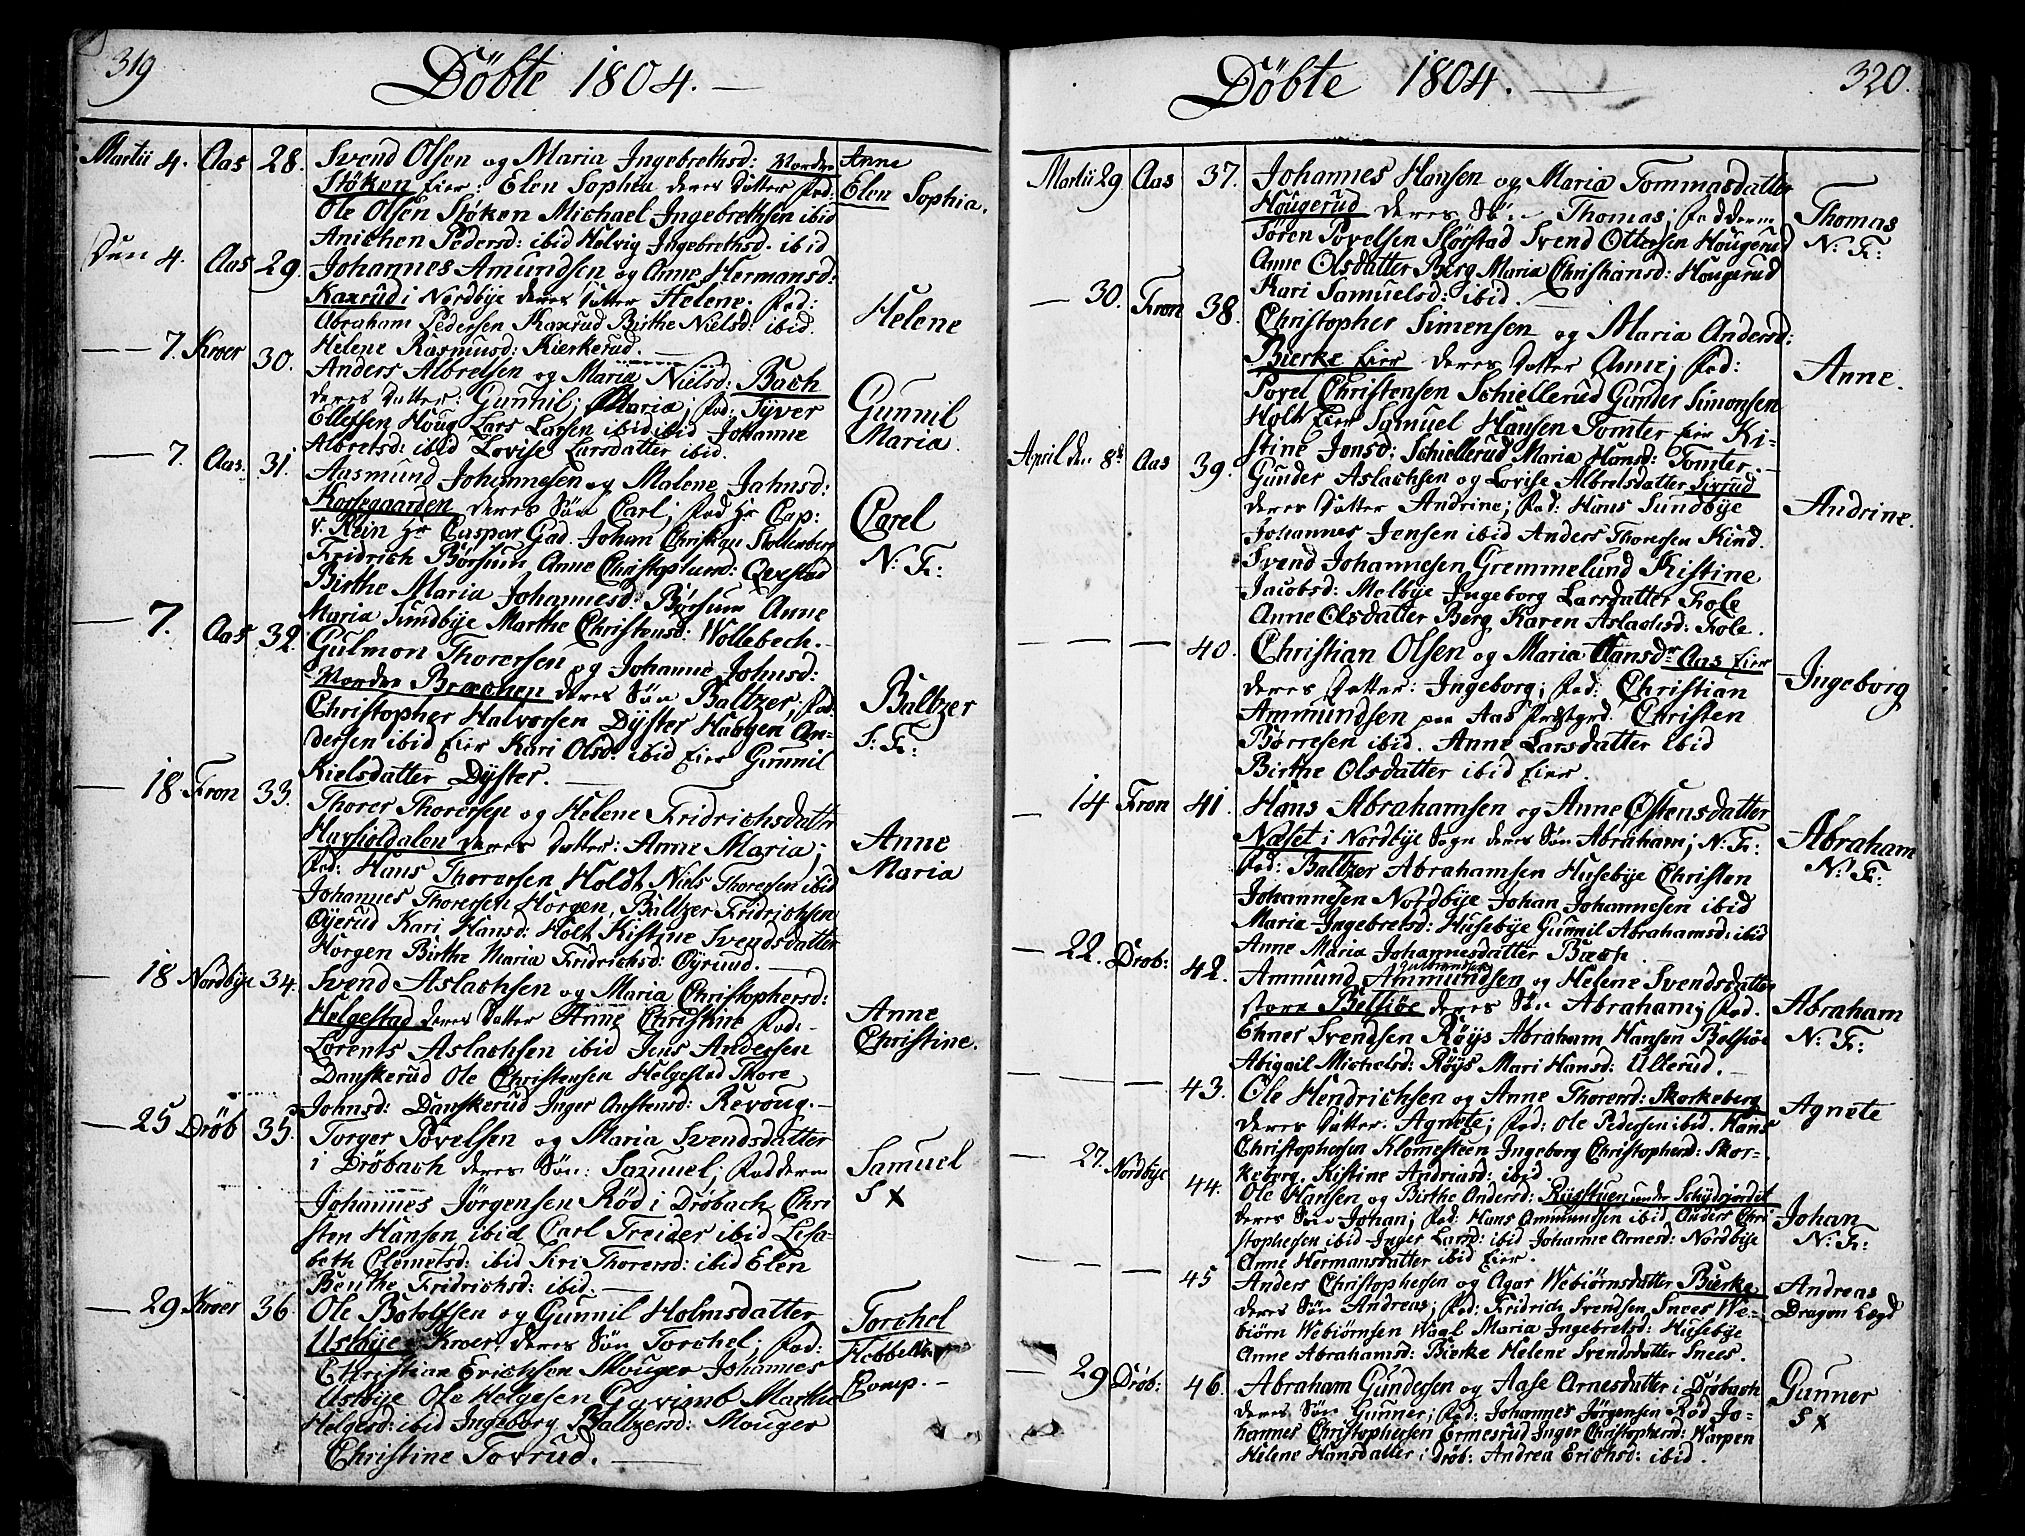 319
Döbte 1804.
Martii 4. Aas 28. Svend Olsen og Maria Ingebrethsd: Nordre Anne
Stöken Eier: Elen Sophia deres Datter Fad: Elen Sophia.
Ole Olsen Stöken Michael Ingebrethsen ibid
Anichen Pedersd: ibid Helvig Ingebrethsd. ibid
Dun 4. Aas 29. Johannes Amundsen og Anne Hermansd:
Kaxrud i Nordbye deres Datter Helene. Fad: Helene
Abraham Pedersen Kaxrud Birthe Nielsd: ibid.
Helene Rasmusd: Kierkerud.
7. Kroer 30. Anders Albretsen og Maria Nielsd: Bach
deres Datter: Gunnil Maria; Fad: Syver Gunnil
Ellefsen Houg Lars Larsen ibid ibid Johanne Maria.
Albretsd: ibid Lovise Larsdatter ibid.
7. Aas. 31. Aasmund Johannesen og Malene Jahnsd:
Korsegaarden deres Sön Carl; Fad Hr Cap: Carel
v: Rein Hr Caspar Gad. Johan Christian Stollenberg N: F:
Fridrich Börsum Anne Christophersd: Qvestad
Birthe Maria Johannesd: Börsum Anne
Maria Sundbye Marthe Christensd: Wollebech.
7. Aas 32. Gulmon Thorersen og Johanne Johnsd:
Nordre Brechen deres Sön Baltzer; Fad: Baltzer
Christopher Halvorsen Dÿster Haagen An- S: F:
dersen ibid Eier Kari Olsd: ibid Eier Gunnil
Kielsdatter Dÿster.
18 Fron 33. Thorer Thorersen og Helene Fridrichsdatter
deres Datter: Anne Maria; Anne
Fad: Hans Thorersen Holdt Niels Thorersen ibid Maria
Johannes Thorersen Horgen, Baltzer Fridrichsen
Öÿerud Kari Hansd: Holt Kistine Svendsdatter
Horgen Birthe Maria Fridrichsd: Öÿruud.
18 Nordbÿe 34. Svend Aslachsen og Maria Christophersd:
Helgestad deres Datter Anne Christine Fad: Anne
Lorents Aslachsen ibid Jens Andersen Christine.
Danskerud Ole Christensen Helgestad Thore
Johnsd: Danskerud Inger Anstensd: Revoug.
25 Dröb 35. Torger Povelsen og Maria Svendsdatter
i Dröbach deres Sön: Samuel; Fadderne Samuel
Johannes Jörgensen Röd i Dröbach Chri S X
sten Hansen ibid Carl Treider ibid Lisa-
beth Clemetsd: ibid Kiri Thorersd: ibid Elen
Benthe Fridrichsd: ibid.
29 Kroer 36. Ole Botolfsen og Gunnil Holmsdatter Torchel
Ustbÿe i Kroer, deres Sön Torchel; Fad:
Christian Erichsen Mouger Johannes
Ustbÿe Ole Helgesen Marthe Comp.
Helgesd: ibid Ingeborg Baltzersd: Mouger
Christine Tovrud.
320.
Döbte 1804.
Martii 29 Aas 37. Johannes Hansen og Maria Tommasdatter
Hougerud deres Sön Thomas; Fadderne Thomas
Sören Povelsen Störstad Svend Ottersen Hougerud N: F:
Anne Olsdatter Berg Maria Christiansd: Hougerud
Kari Samuelsd: ibid.
30. Fron 38. Christopher Simensen og Maria Andersd:
Bierke Eier deres Datter Anne; Fad: Anne.
Povel Christensen Schiellerud Gunder Simonsen
Holt Eier Samuel Hansen Tomter Eier Ki-
stine Jonsd: Schiellerud Maria Hansd: Tomter.
April den 8de Aas 39. Gunder Aslachsen og Lovise Albretsdatter Sirrud
deres Datter Andrine; Fad: Hans Sundbÿe Andrine.
Johannes Jensen ibid Anders Thorersen Kind.
Svend Johannesen Gremmelund Kistine
Jacobsd: Melbÿe Ingeborg Larsdatter Fole
Anne Olsdatter Berg Karen Aslachsd: Fole.
40. Christian Olsen og Maria Hansdr Aas Eier
deres Datter: Ingeborg; Fad: Christian Ingeborg
Ammundsen paa Aas Præstgrd. Christen
Börresen ibid. Anne Larsdatter ibid
Birthe Olsdatter ibid Eier.
14 Fron 41. Hans Abrahamsen og Anne Östensdatter
Næset i Nordbÿe Sogn deres Sön Abraham; N: F: Abraham
Fad: Baltzer Abrahamsen Husebÿe Christen N: F:
Johannesen Nordbÿe Johan Johannesen ibid
Maria Ingebretsd: Husebÿe Gunnil Abrahamsd: ibid
Anne Maria Johannesdatter Bæch.
22. Dröb: 42. Ammund Ammundsen og Helene Svendsdatter
store Bellsiöe deres Sön Abraham; Fad. Abraham
Ehner Svendsen Röÿs Abraham Hansen Bolsiöe N: F:
Abigail Michelsd: Röÿs Mari Hansd: Ullerud.
43. Ole Hendrichsen og Anne Thorersd: Skorkeberg
deres Datter: Agnete; Fad: Ole Pedersen ibid. Hans Agnete
Christophersen Klomesteen Ingeborg Christophersd: Skor-
keberg, Kistine Andriasd: ibid.
27. Nordbÿe 44. Ole Hansen og Birthe Andersd: Rÿestuen under Schÿdsjordet
deres Sön Johan; Fad: Hans Ammundsen ibid, Anders Chri Johan
stophersen ibid Inger Larsd: ibid Johanne Arnesd: Nordbÿe N: F:
Anne Hermansdatter ibid Eier.
45 Anders Christophersen og Agar Webiörnsdatter Bierke Andreas
deres Sön Andreas; Fad: Fridrich Svendsen Snees We- Dragon Lægd
biörn Webiörnsen Waal Maria Ingebretsd: Husebÿe
Anne Abrahamsd: Bierke Helene Svendsdatter Snees.
29 Dröb: 46. Abraham Gundersen og Aase Arnesdatter i Dröbach Gunner
deres Sön Gunner; Fad: Johannes Jörgensen Röd Jo- S X
hannes Christophersen Ermesrud Inger Christophersd: Warpen
Helene Hansdatter i Dröb: Andrea Erichsd: ibid.